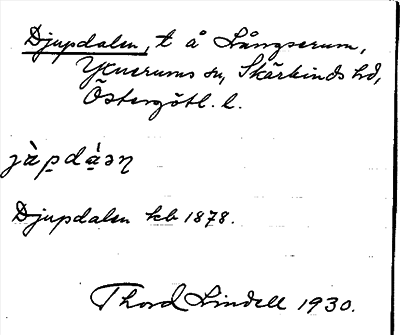 Djupdalen, t å Långserum,
Yxnerums sn, Skärkinds hd,
Östergötl. l.
jàp̱dá̱əŋ
Djupdalen kb 1878.
Thord Lindell 1930.